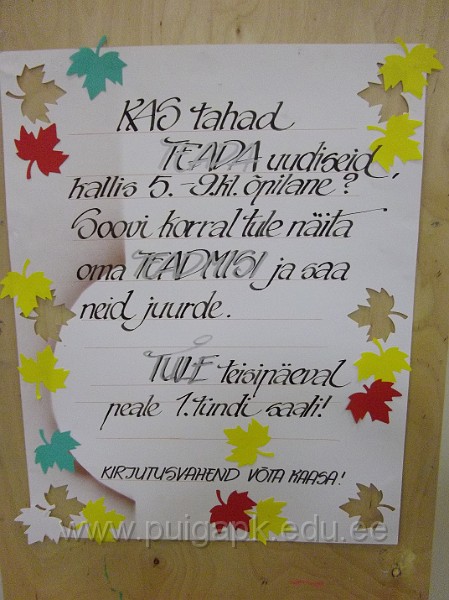 KAS tahad
TEADA uudiseid,
kallis 5.-9.kl. õpilane?
Soovi korral tule näita
oma TEADMISI ja saa
neid juurde.
TULE teisipäeval
peale 1. tundi saali!
KIRJUTUSVAHEND VÕTA KAASA!
www.puigapk.edu.ee